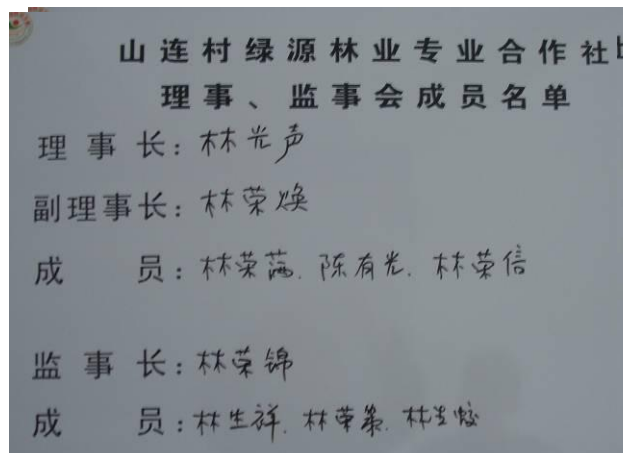 山连村绿源林业专业合作社
理事、监事会成员名单
理事长：林光声
副理事长：林荣焕
成员：林荣藩、陈有光、林荣信
监事长：林荣锦
成员：林生祥、林荣